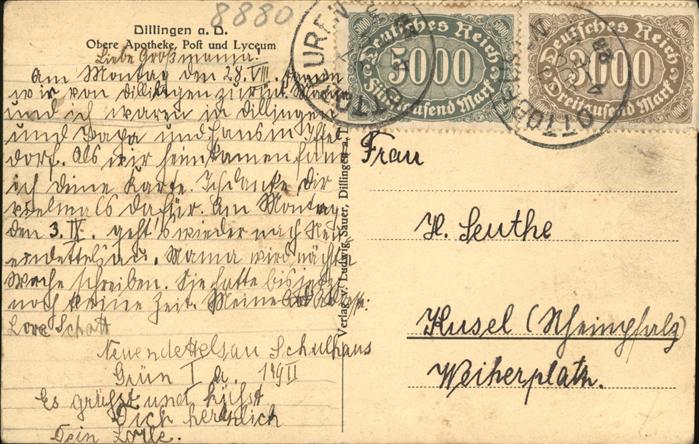 8880
Dillingen a. D.
Obere Apotheke, Post und Lyceum
Liebe Großmama!
Am Montag den 28. VIII. kamen
wir von Dillingen zurück. Mama
und ich waren in Dillingen
und Papa und Hans in
dorf. Als wir heimkamen fand
ich Deine Karte. Ich danke Dir
vielmals dafür. Am Montag
den 3. IX. geht's wieder nach Neu-
endettelsau. Mama wird nächste
Woche schreiben. Sie hatte bis jetzt
noch keine Zeit. Meine
Lore Schatt
Neuendettelsau Schulhaus
Grün I a.
Es grüßt und küßt
Dich herzlich
Dein Lorle.
Verlag v. Ludwig Sauer, Dillingen a. D.
Deutsches Reich
5000
Fünftausend Mark
Deutsches Reich
3000
Dreitausend Mark
OTTOBEUREN
OTTOBEUREN
Frau
H. Leuthe
Kusel (Rheinpfalz)
Weiherplatz.